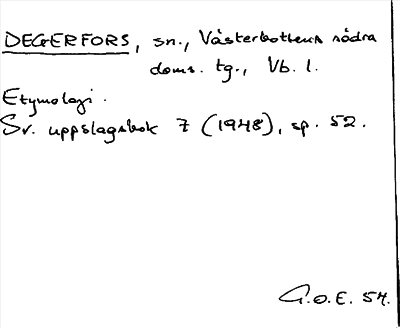 DEGERFORS, sn., Västerbottens södra
doms. tg., Vb. l.
Etymologi.
Sv. uppslagsbok 7 (1948), sp. 52.
G.O.E. 54.